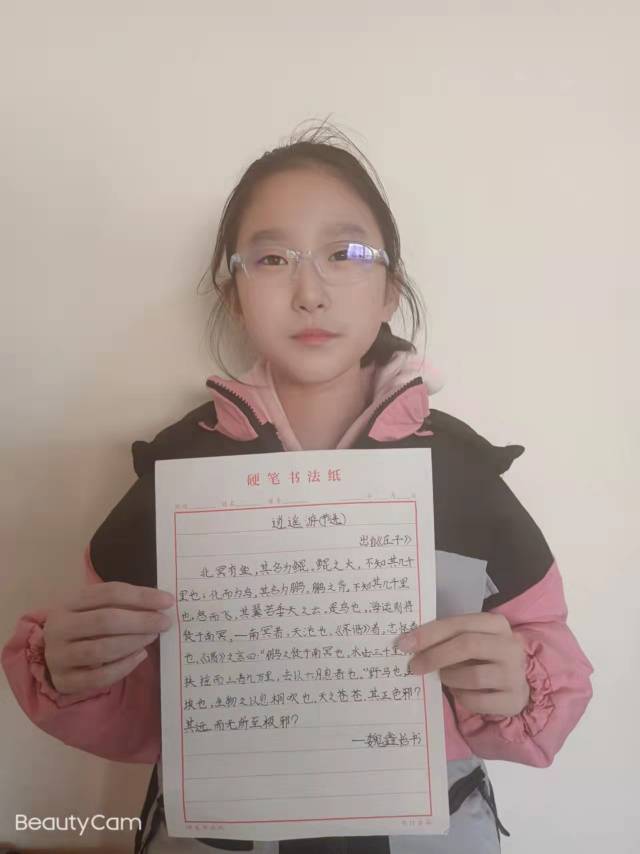 硬笔书法纸
逍遥游(节选)
出自《庄子》
北冥有鱼，其名为鲲。鲲之大，不知其几千
里也；化而为鸟，其名为鹏。鹏之背，不知其几千里
也，怒而飞，其翼若垂天之云。是鸟也，海运则将
徙于南冥，—南冥者，天池也。《齐谐》者，志怪者
也。《谐》之言曰：“鹏之徙于南冥也，水击三千里，
抟扶摇而上者九万里，去以六月息者也。”野马也，
埃也，生物之以息相吹也。天之苍苍，其正色邪？
其远而无所至极邪？
BeautyCam